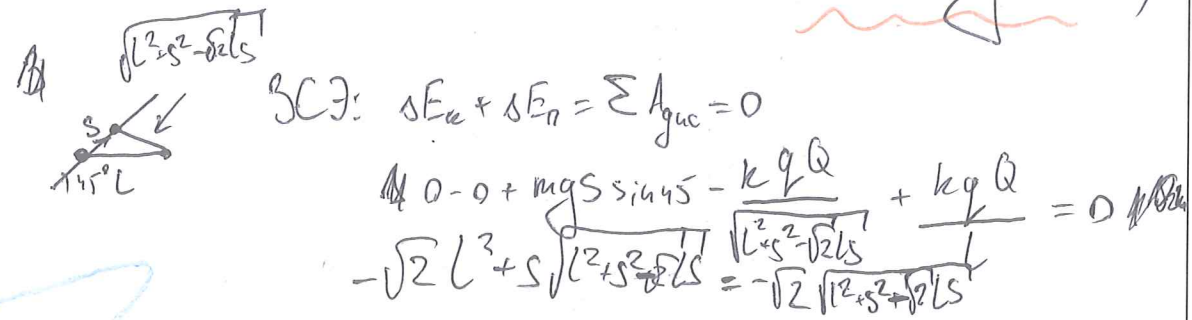 √(L²+S²-√2LS)
ЗСЭ: ΔEк + ΔEп = ΣAдис = 0
S
45° L
0-0 + mgS sin45 - kqQ/√(L²+S²-√2LS) + kqQ/L = 0
-√2 L³ + S√(L²+S²-√2LS) = -√2 √(L²+S²-√2LS)